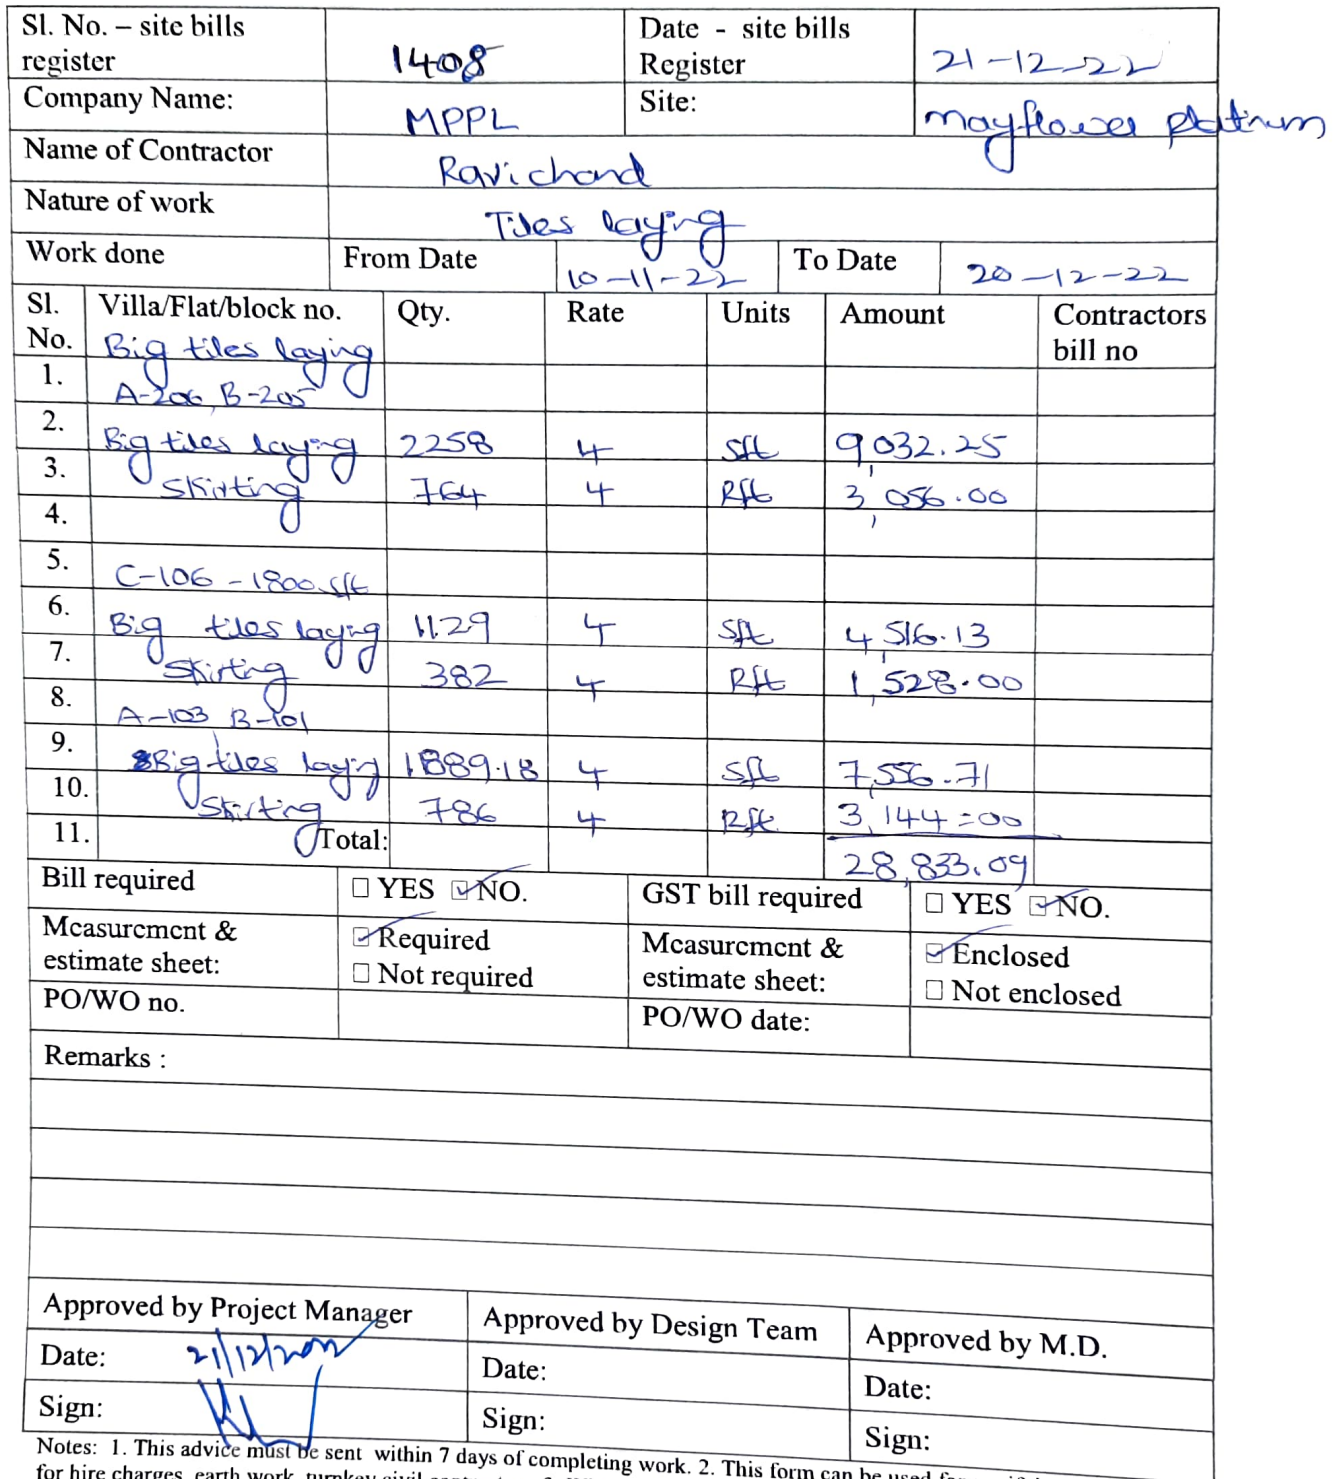 Sl. No. – site bills register 1408 Date - site bills Register 21-12-22
Company Name: MPPL Site: mayflower platinum
Name of Contractor Ravichand
Nature of work Tiles laying
Work done From Date 10-11-22 To Date 20-12-22
Sl. No. Villa/Flat/block no. Qty. Rate Units Amount Contractors bill no
Big tiles laying
1. A-206, B-205
2. Big tiles laying 2258 4 Sft 9,032.25
3. Skirting 764 4 Rft 3,056.00
4.
5. C-106 - 1800 sft
6. Big tiles laying 1129 4 Sft 4,516.13
7. Skirting 382 4 Rft 1,528.00
8. A-103, B-101
9. Big tiles laying 1889.18 4 Sft 7,556.71
10. Skirting 786 4 Rft 3,144=00
11. Total: 28,833.09
Bill required ☐ YES ☑ NO. GST bill required ☐ YES ☑ NO.
Measurement & estimate sheet: ☑ Required ☐ Not required Measurement & estimate sheet: ☑ Enclosed ☐ Not enclosed
PO/WO no. PO/WO date:
Remarks :
Approved by Project Manager Approved by Design Team Approved by M.D.
Date: 21/12/2022 Date: Date:
Sign: Sign: Sign:
Notes: 1. This advice must be sent within 7 days of completing work. 2. This form can be used for
for hire charges, earth work, turnkey civil